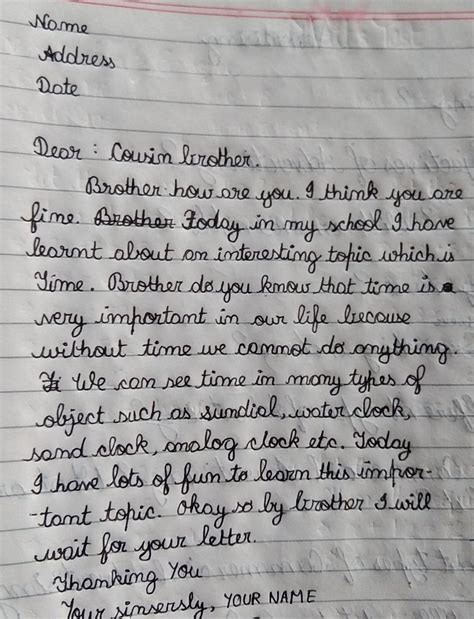 Name
Address
Date
Dear : Cousin brother.
Brother how are you. I think you are
fine. Brother Today in my school I have
learnt about an interesting topic which is
Time. Brother do you know that time is a
very important in our life because
without time we cannot do anything.
We can see time in many types of
object such as sundial, water clock,
sand clock, analog clock etc. Today
I have lots of fun to learn this impor-
-tant topic. Okay so by brother I will
wait for your letter.
Thanking You
Your sinsersly, YOUR NAME